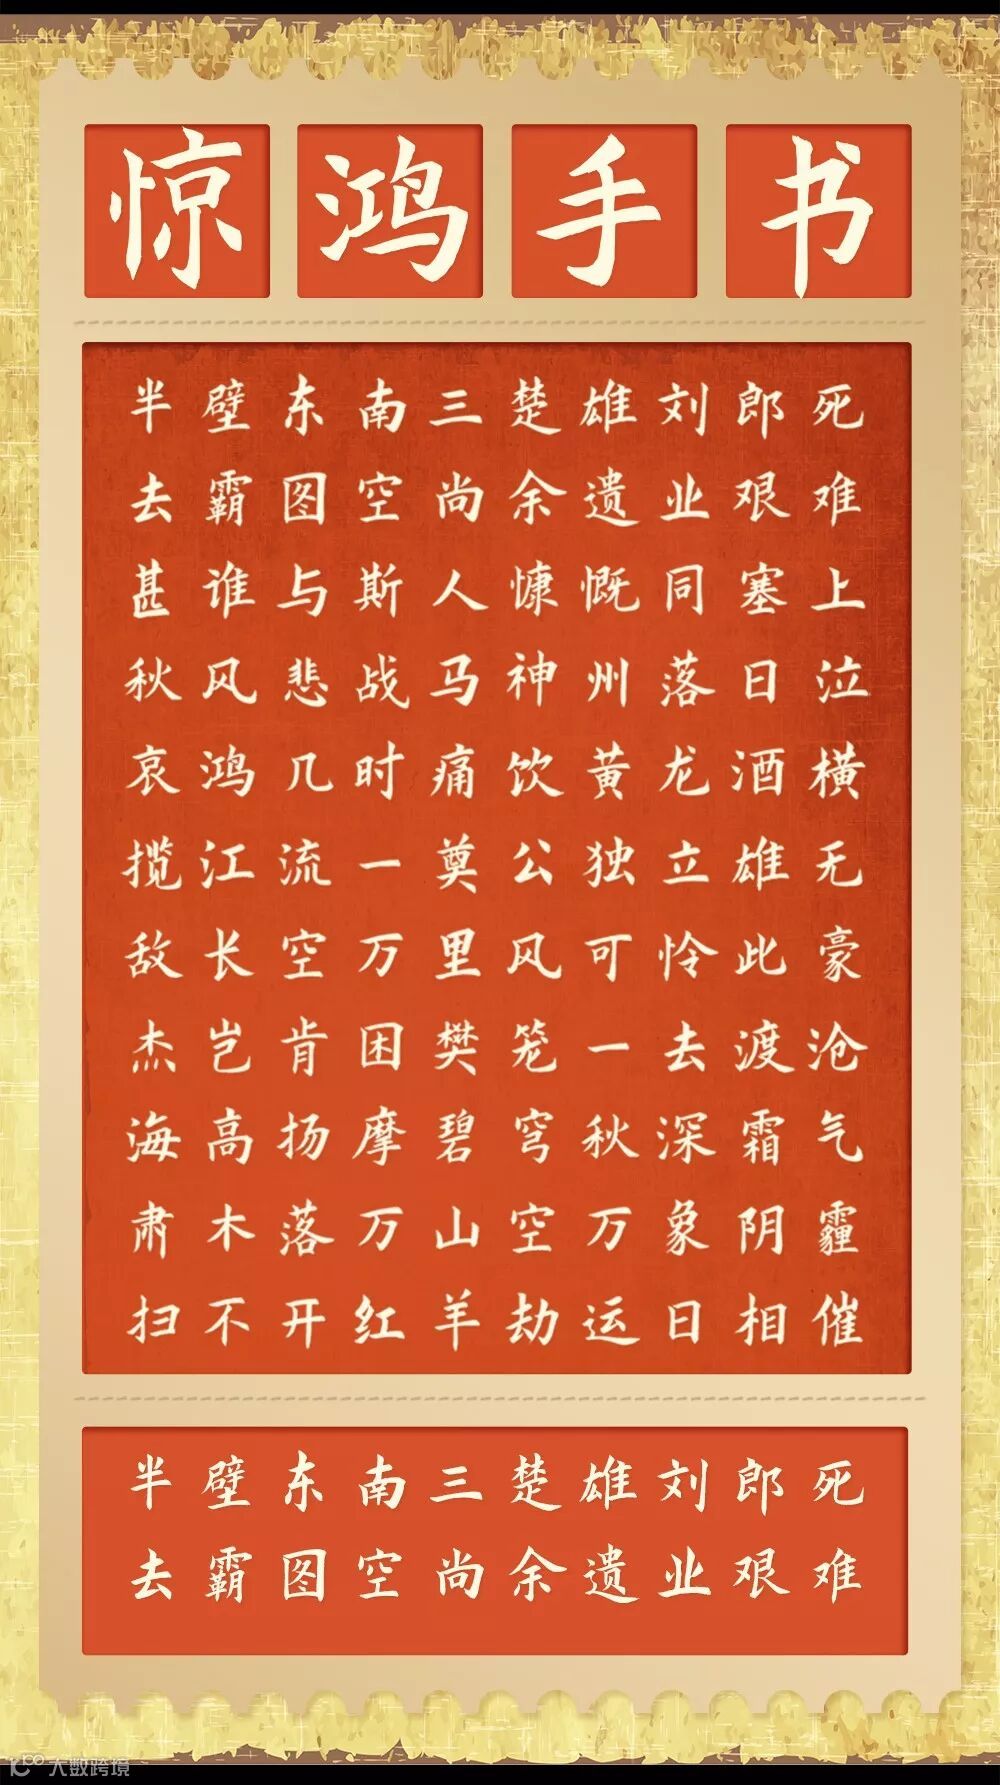 惊鸿手书
半壁东南三楚雄刘郎死
去霸图空尚余遗业艰难
甚谁与斯人慷慨同塞上
秋风悲战马神州落日泣
哀鸿几时痛饮黄龙酒横
揽江流一奠公独立雄无
敌长空万里风可怜此豪
杰岂肯困樊笼一去渡沧
海高扬摩碧穹秋深霜气
肃木落万山空万象阴霾
扫不开红羊劫运日相催
半壁东南三楚雄刘郎死
去霸图空尚余遗业艰难
大数跨境